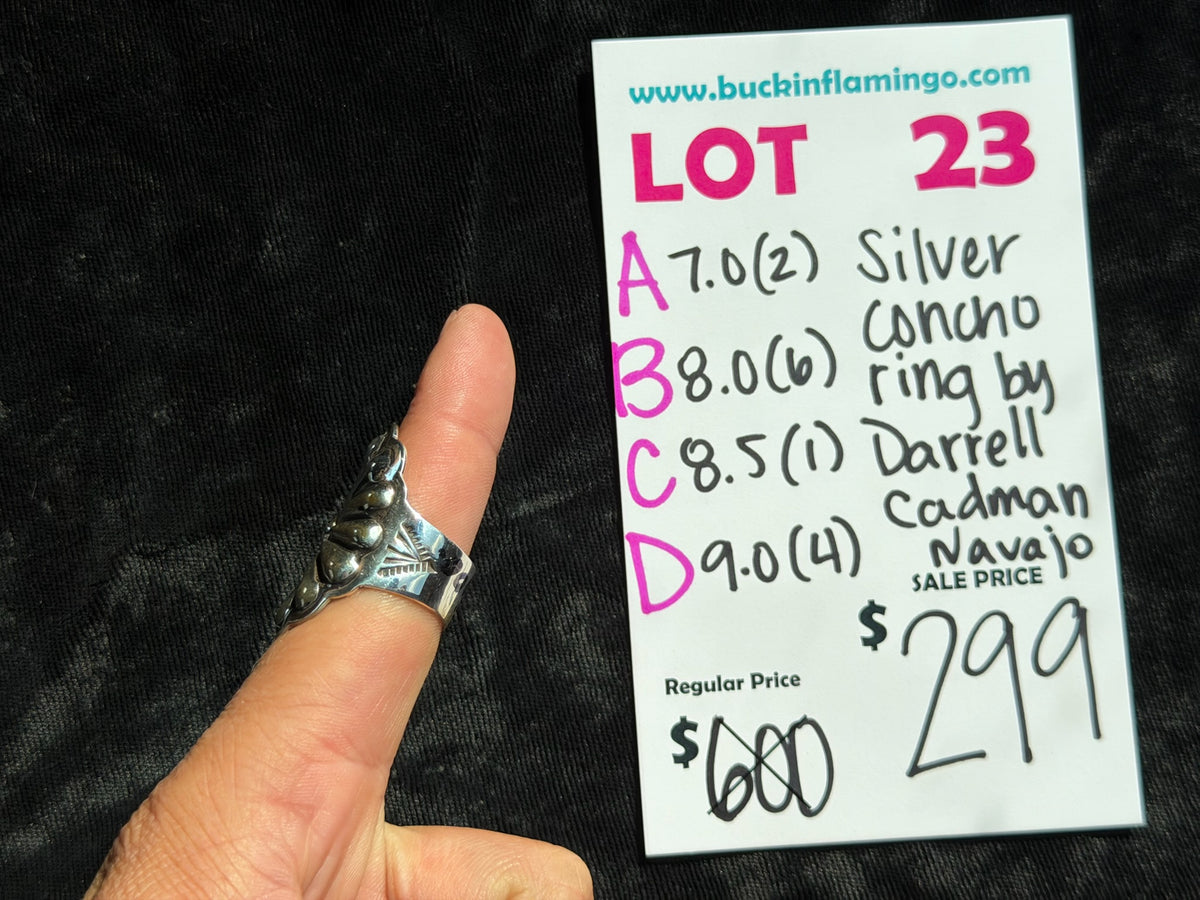 www.buckinflamingo.com
LOT 23
A 7.0(2) Silver
concho
B 8.0(6) ring by
C 8.5(1) Darrell
cadman
D 9.0(4) Navajo
SALE PRICE
$299
Regular Price
$600